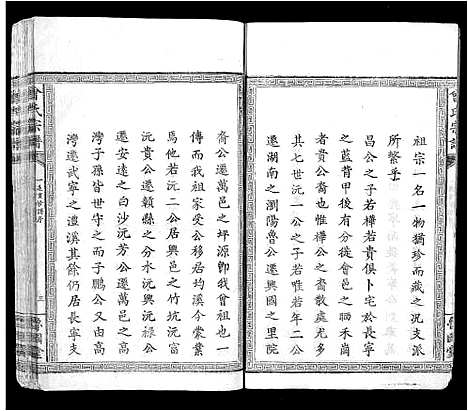 祖宗一名一物猶珍而藏之況支派
所繫乎
昌公之子若樺若貴俱卜宅於長寧
之藍背甲後有分徙會邑之晒禾崗
其七世沅一公之裔散處尤多
遷湖南之瀏陽魯公遷興國之里院
裔公遷萬邑之坪源卽我曾祖也一
傳而榮發我祖家受公移居均溪今棠葉
焉他若沅二公居興邑之竹坑沅富
沅貴公遷贛縣之分水沅興沅祿公
遷安遠之白沙沅芳公遷萬邑之嵩
灣子孫皆世守之而子鵬公又由嵩
灣遷武寧之澧溪其餘仍居長寧支
曾氏宗譜
三